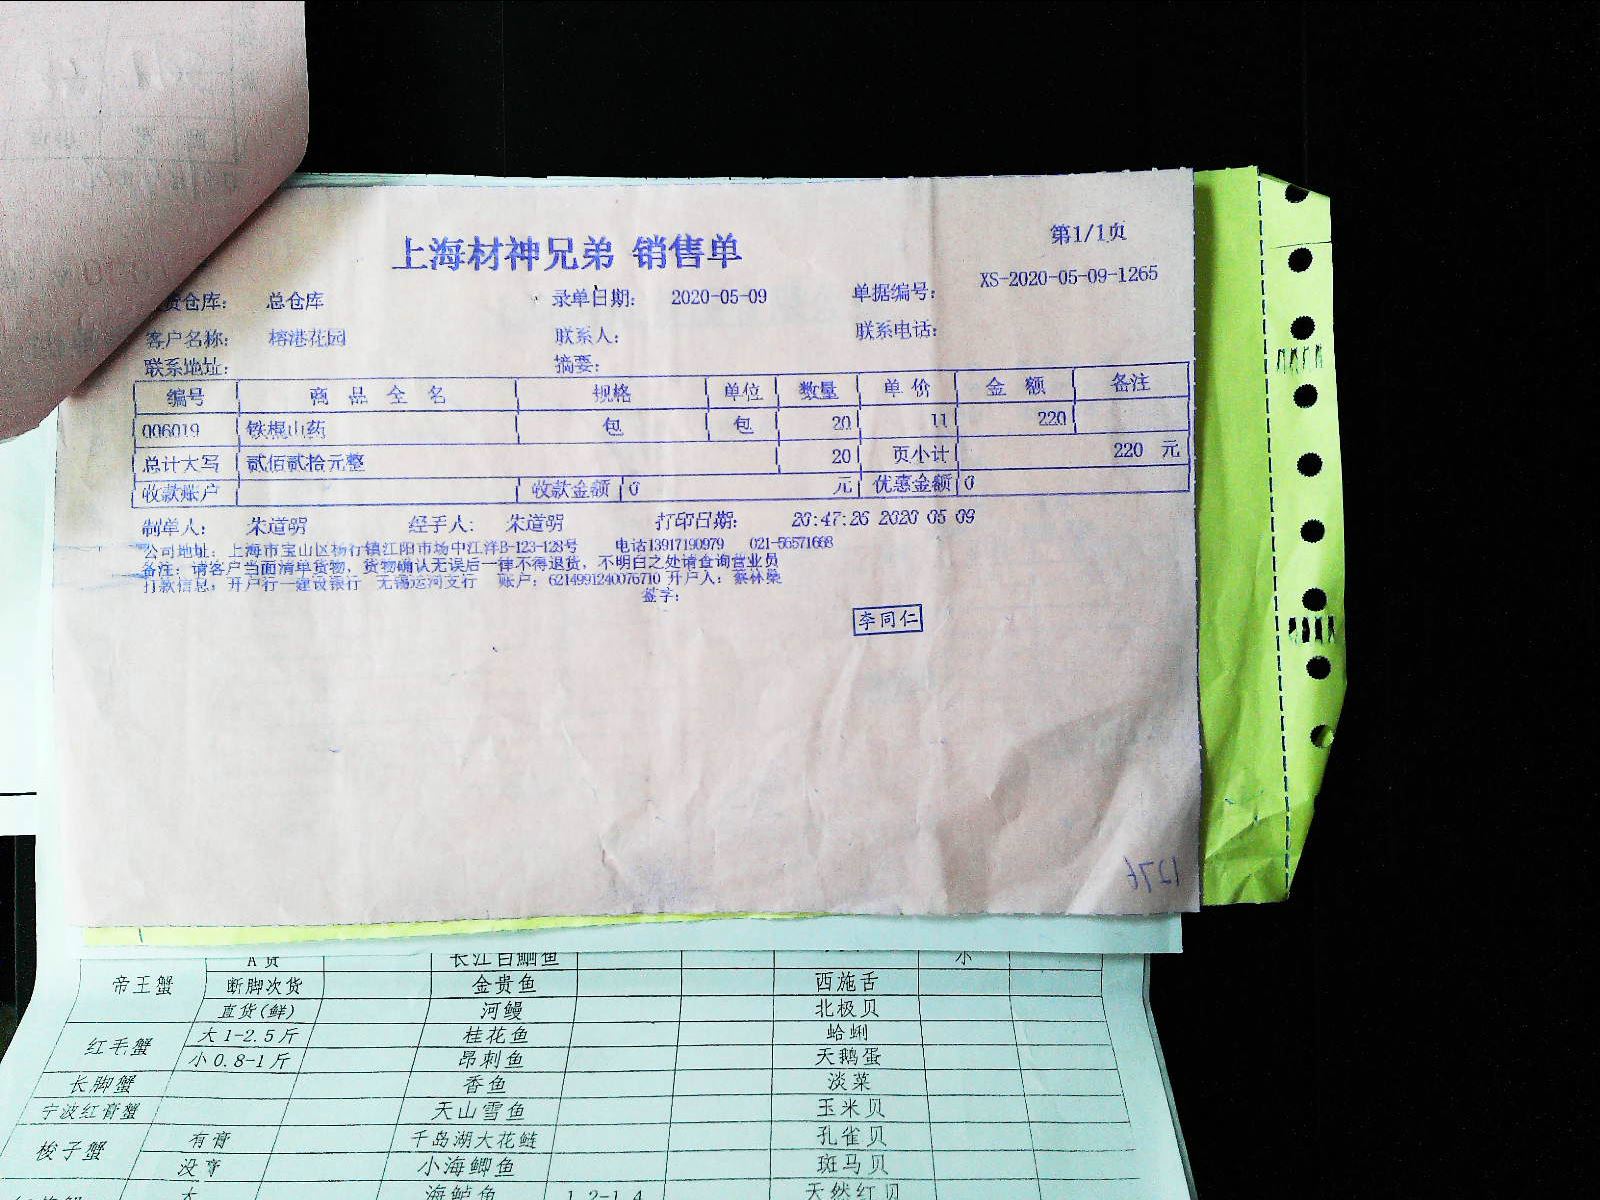 上海材神兄弟 销售单
第1/1页
货仓库： 总仓库 录单日期： 2020-05-09 单据编号： XS-2020-05-09-1265
客户名称： 榕港花园 联系人： 联系电话：
联系地址： 摘要：
编号 商 品 全 名 规格 单位 数量 单 价 金 额 备注
006019 铁棍山药 包 包 20 11 220
总计大写 贰佰贰拾元整 20 页小计 220 元
收款账户 收款金额 0 元 优惠金额 0
制单人： 朱道明 经手人： 朱道明 打印日期： 20:47:26 2020 05 09
公司地址：上海市宝山区杨行镇江阳市场中江洋B-123-128号 电话13917190979 021-56571668
备注：请客户当面清单货物，货物确认无误后一律不得退货，不明白之处请查询营业员
打款信息：开户行—建设银行 无锡运河支行 账户：6214991240076710 开户人：蔡林燊
签字：
李同仁
A货 长江白鮰鱼 小
帝王蟹 断脚次货 金贵鱼 西施舌
直货(鲜) 河鳗 北极贝
红毛蟹 大1-2.5斤 桂花鱼 蛤蜊
小0.8-1斤 昂刺鱼 天鹅蛋
长脚蟹 香鱼 淡菜
宁波红膏蟹 天山雪鱼 玉米贝
梭子蟹 有膏 千岛湖大花鲢 孔雀贝
没膏 小海鲫鱼 斑马贝
大 海鲈鱼 1.2-1.4 天然红贝